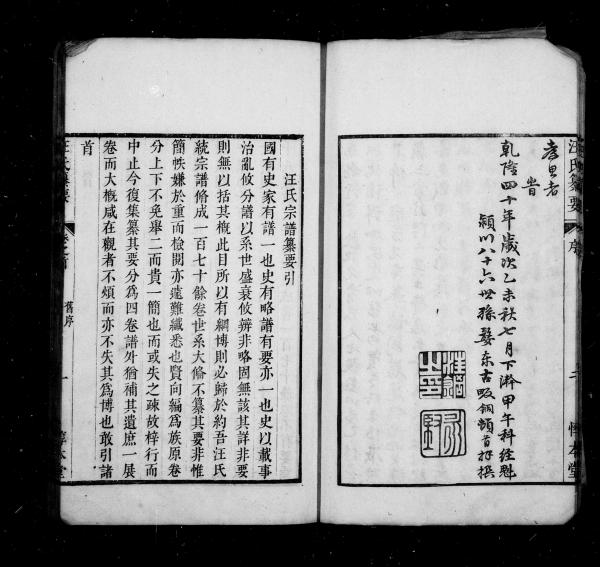 汪氏纂要
序
二
惇本堂
考畧者
旹
乾隆四十年歲次乙未秋七月下澣甲午科經魁
潁川八十六世孫婺東古畈銅頓首拜撰
汪氏宗譜纂要引
國有史家有譜一也史有略譜有要亦一也史以載事
治亂攸分譜以系世盛衰攸辨非略固無該其詳非要
則無以括其概此目所以有綱博則必歸於約吾汪氏
統宗譜脩成一百七十餘卷世系大備不纂其要非惟
簡帙嫌於重而檢閱亦遠難纖悉也賢向編為族原卷
分上下不免舉二而貴一簡也而或失之疎故梓行而
中止今復集纂其要分為四卷譜外猶補其遺庶一展
卷而大概咸在觀者不煩而亦不失其為博也敢引諸
首
汪氏纂要
舊序
一
惇本堂